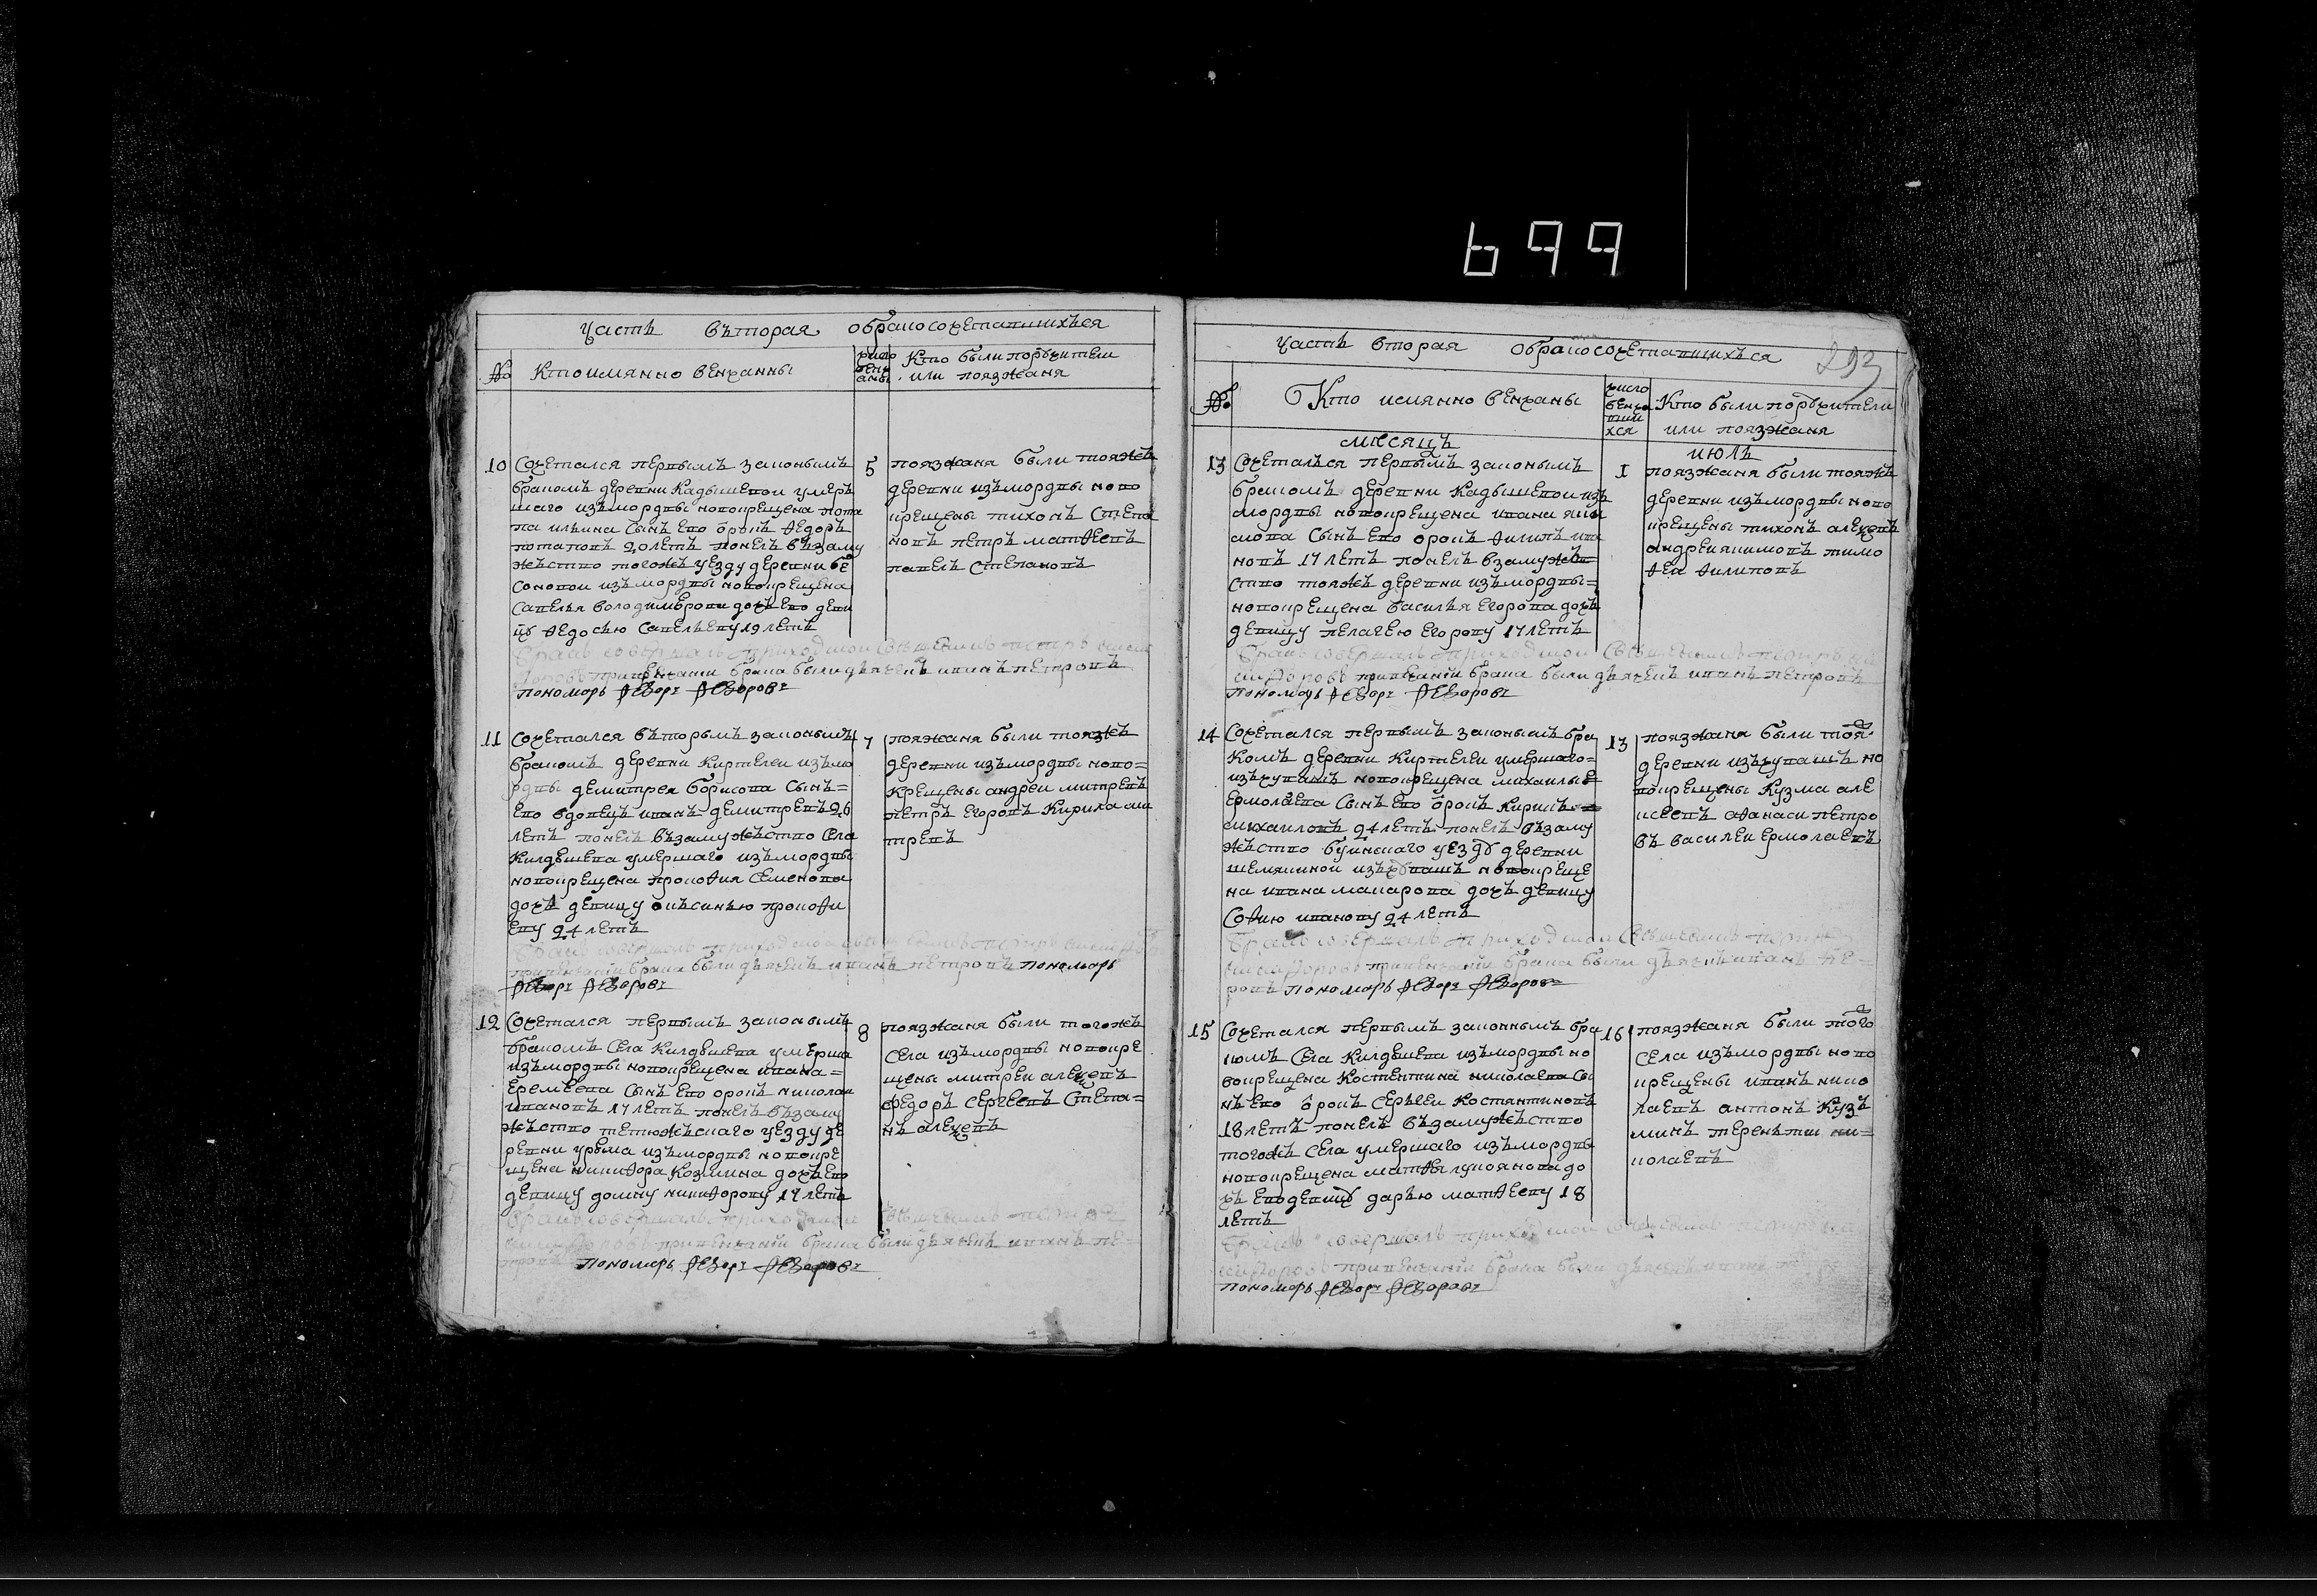 699
часть вторая обракосочетавшихъся
№ Кто имянно венчанны
число венчаны
Кто были поручители
или поязжаня
10 Сочетался первымъ законымъ 5
бракомъ деревни Кадышевои умеръ
шаго изъ мордвы новокрещена пота
па ильина сынъ ево ѳедоръ
потаповъ 20 летъ понелъ взаму
жъство тогожъ уезду деревни бе
соновои изъ мордвы новокрещена
савелья володимерова дочь ево деви
цу ѳедосью савельеву 19 летъ
поязжаня были тояжъ
деревни изъ мордвы ново
крещены тихонъ степа
новъ петръ матѳеевъ
павелъ степановъ
бракъ совершалъ приходской священникъ петръ
при венчании брака были дьячекъ иванъ петровъ
пономарь Ѳедоръ Ѳедоровъ
11 Сочетался въторымъ законымъ 7
бракомъ деревни Киртелеи изъ мо
рдвы демитрея борисова сынъ=
ево вдовецъ иванъ демитревъ 26
летъ понелъ възамужъство села
Килдешева умершаго изъ мордвы
новокрещена прокоѳия семенова
дочь девицу оксинью прокоѳи
еву 24 летъ
поязжаня были тояжъ
деревни изъ мордвы ново=
крещены андреи митревъ
петръ егоровъ Кирила ми
тревъ
бракъ совершалъ приходской священникъ петръ
при венчании брака были дьячекъ иванъ петровъ пономарь
Ѳедоръ Ѳедоровъ
12 Сочетался первымъ законымъ 8
бракомъ села Килдешева умерша
изъ мордвы новокрещена ивана=
еремеева сынъ ево николаи
ивановъ 17 летъ понелъ възаму
жъство тетюжъскаго уезду де
ревни урюма изъ мордвы новокре
щена никиѳора козмина дочь ево
девицу домну никиѳорову 17 летъ
поязжаня были тогожъ
села изъ мордвы новокре
щены митреи алеѯевъ
ѳедоръ сергеевъ степа=
нъ алеѯевъ
бракъ совершалъ приходской священникъ петръ
при венчании брака были дьячекъ иванъ пе=
тровъ пономарь Ѳедоръ Ѳедоровъ
часть вторая обракосочетавшихъся
293
№ Кто исмянно венчаны
число венчавшихся
Кто были поручители
или поязжаня
месяцъ июль
13 Сочеталъся первымъ законымъ 1
бракомъ деревни Кадышевои изъ
мордвы новокрещена ивана яки
мова сынъ ево ѳилипъ ива
новъ 17 летъ понелъ взамужъ
ство тояжъ деревни изъ мордвы=
новокрещена василья егорова дочь
девицу пелагею егорову 17 летъ
поязжаня были тояжъ
деревни изъ мордвы ново
крещены тихонъ алеѯевъ
андреи якимовъ тимо
ѳеи ѳилиповъ
бракъ совершалъ приходской священникъ петръ
при венчании брака были дьячекъ иванъ петровъ
пономарь Ѳедоръ Ѳедоровъ
14 Сочетался первымъ законымъ бра 13
комъ деревни Киртелеи умершаго=
изъ чувашъ новокрещена михаилы
ермолаева сынъ ево
михаиловъ 24 летъ понелъ възаму
жъство буинскаго уезду деревни
шемякиной изъ чувашъ новокреще
на ивана макарова дочь девицу
соѳию иванову 24 летъ
поязжаня были тояж
деревни изъ чувашъ но
вокрещены Кузма але
ксеевъ аѳанаси петро
въ василеи ермолаевъ
бракъ совершалъ приходской священникъ петръ
при венчании брака были дьячекъ иванъ пе=
ровъ пономарь Ѳедоръ Ѳедоровъ
15 Сочетался первымъ законнымъ бра 16
комъ села Килдешева изъ мордвы но
вокрещена Костентина николаева сы
нъ ево сергеи костянтиновъ
18 летъ понелъ възамужъство
тогожъ села умершаго изъ мордвы
новокрещена матѳея лукоянова до
чь ево девицу дарью матѳееву 18
летъ
поязжаня были тогож
села изъ мордвы ново
крещены иванъ нико
лаевъ антонъ Кузъ
минъ терентеи ни=
колаевъ
бракъ совершалъ приходской священникъ петръ
при венчании брака были дьячекъ иванъ
пономарь Ѳедоръ Ѳедоровъ